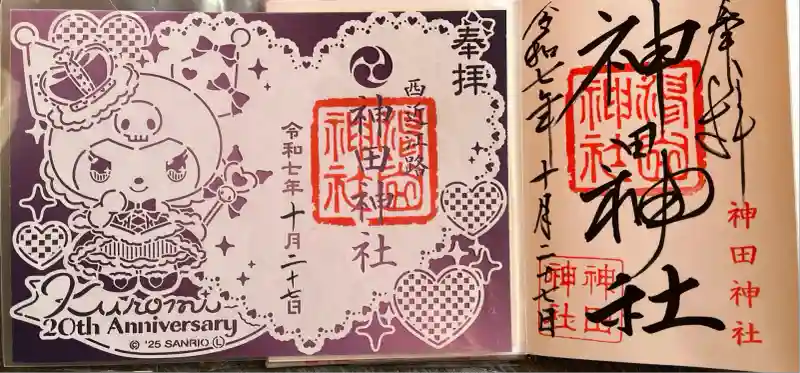 奉拝
西近江路
神田神社
令和七年 十月二十七日
神田神社
Kuromi
20th Anniversary
© '25 SANRIO Ⓛ
奉拝
神田神社
神田神社
神田神社
令和七年十月二十七日
神田神社